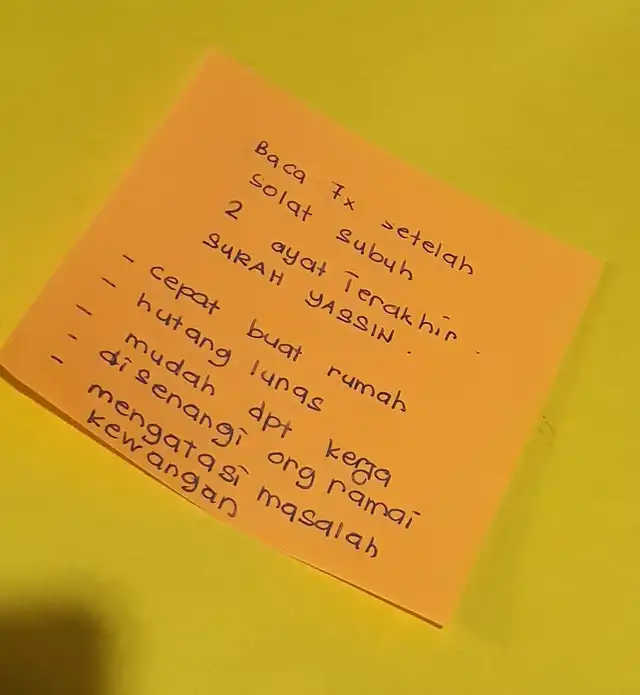 Baca 7x setelah
solat subuh
2 ayat Terakhir.
SURAH YASSIN.
- cepat buat rumah
- hutang lunas
- mudah dpt kerja
- disenangi org ramai
- mengatasi masalah
kewangan